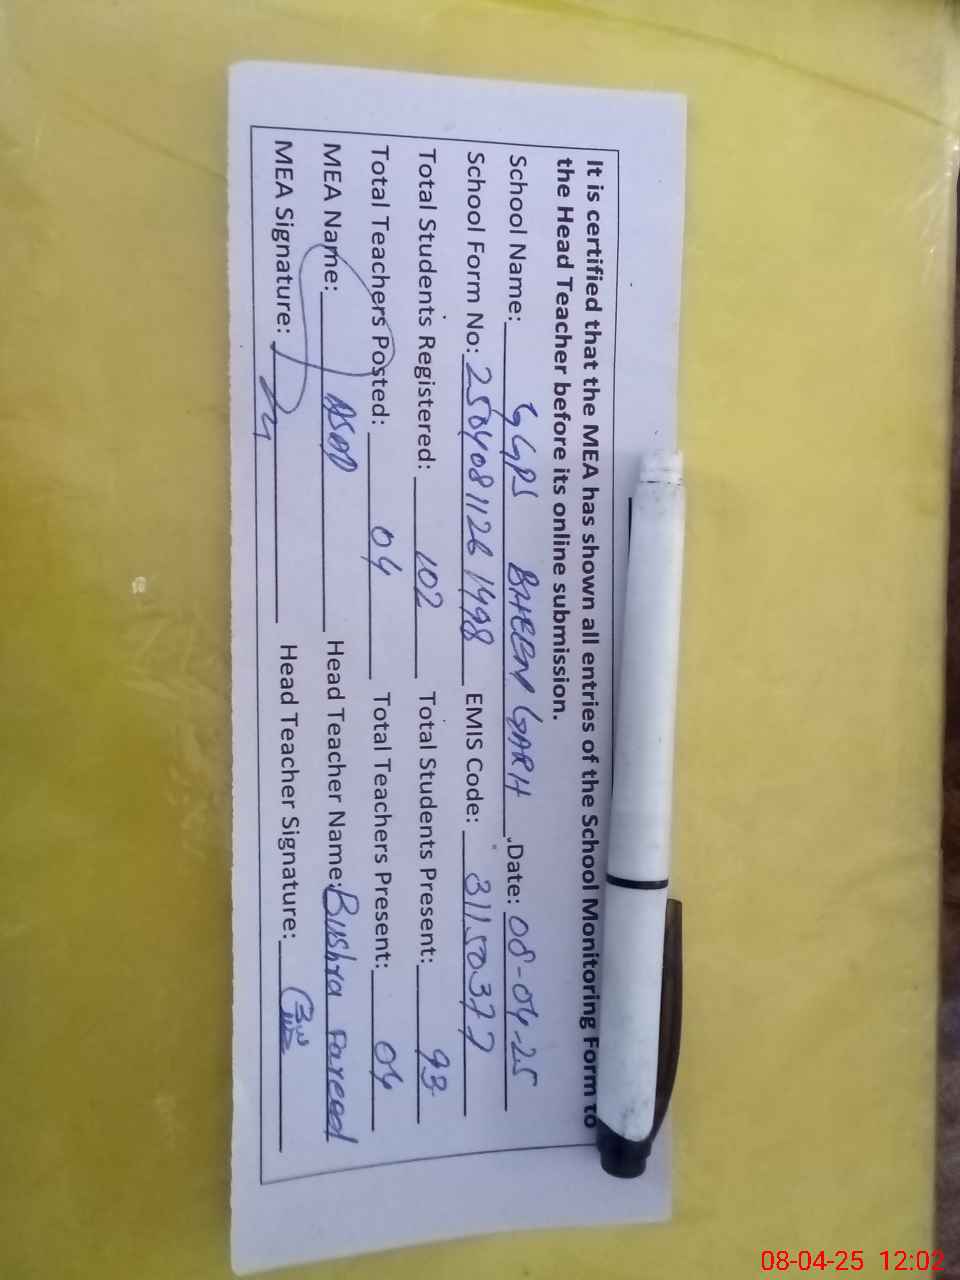 It is certified that the MEA has shown all entries of the School Monitoring Form to
the Head Teacher before its online submission.
School Name: GGPS BHEEM GARH Date: 08-04-25
School Form No: 2504081126 1498 EMIS Code: 31150377
Total Students Registered: 102 Total Students Present: 93
Total Teachers Posted: 04 Total Teachers Present: 04
MEA Name: ASAD Head Teacher Name: Bushra Fareed
MEA Signature: Head Teacher Signature:
08-04-25 12:02